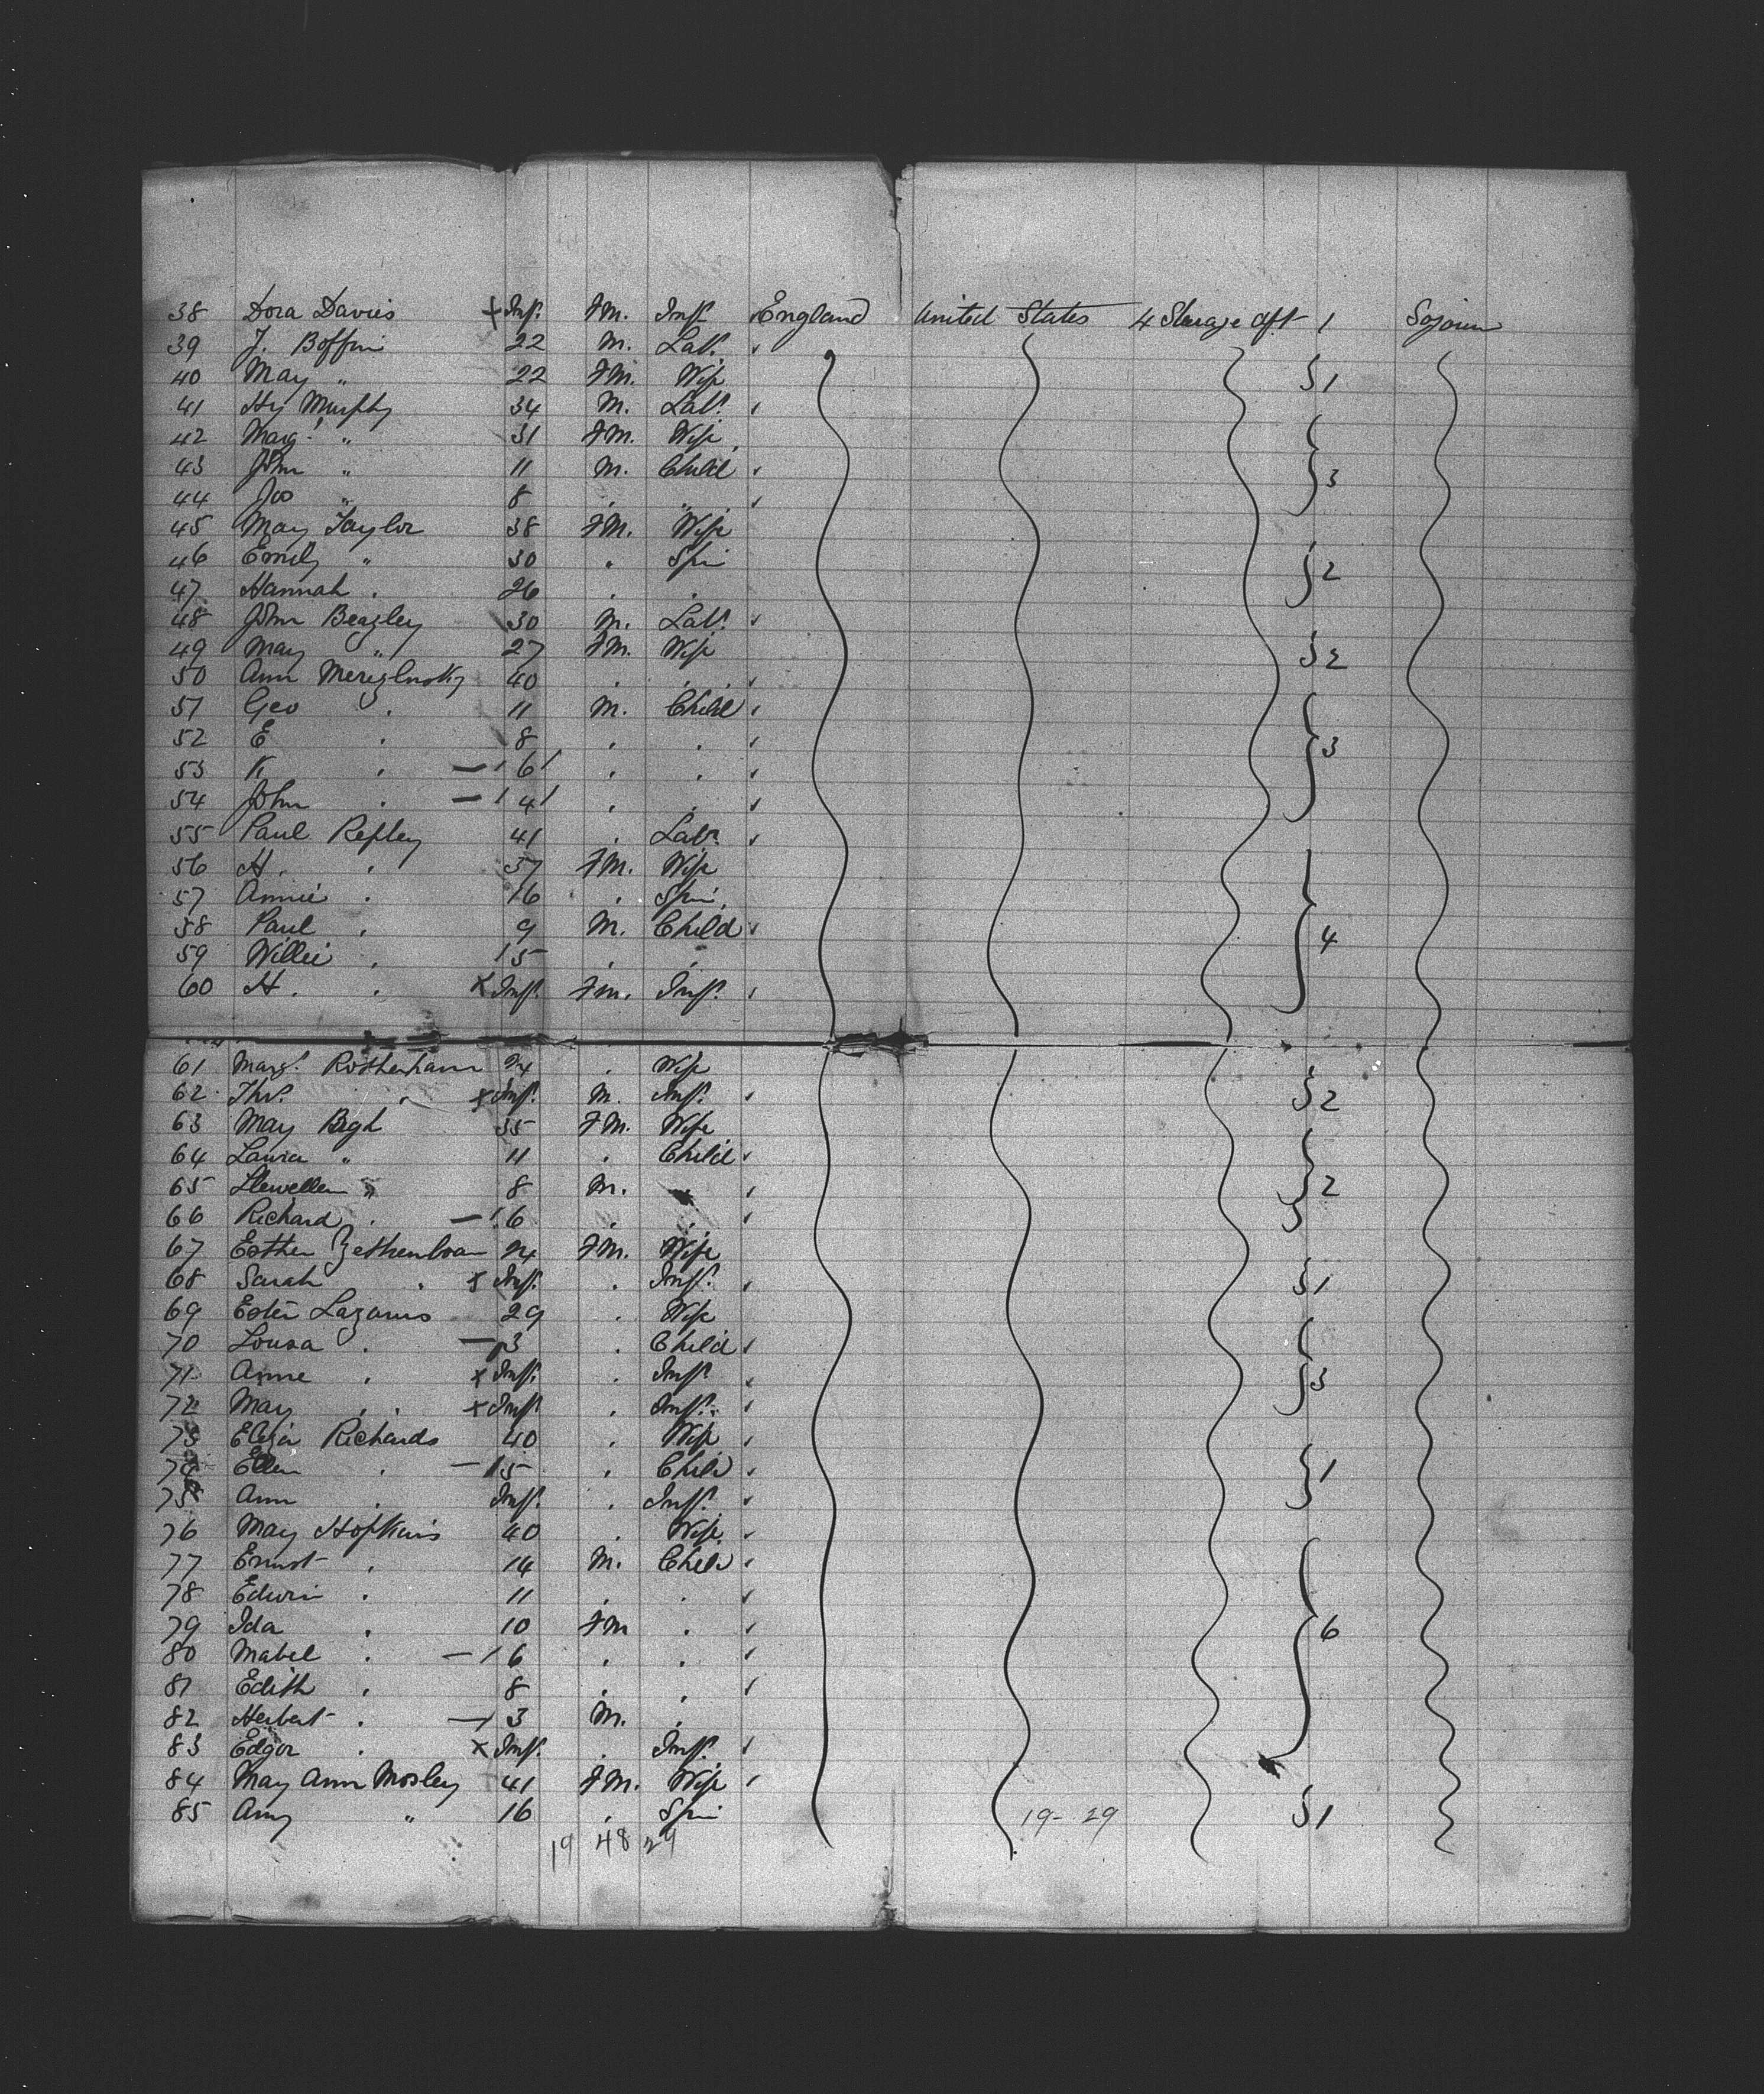 38 Dora Davies + Inft. Fm. Inft. England United States 4 Sterage aft 1 Sojourn
39 J. Boffin 22 M. Labr.
40 May " 22 Fm. Wife } 1
41 Hy Murphy 34 M. Labr.
42 Margt. " 31 Fm. Wife
43 John " 11 M. Child } 3
44 Jos " 8 " "
45 May Taylor 38 Fm. Wife
46 Emily " 30 " Spin } 2
47 Hannah " 26 " "
48 John Beazley 30 M. Labr.
49 May " 27 Fm. Wife } 2
50 Ann 40 " "
51 Geo " 11 M. Child
52 E " 8 " " } 3
53 K " — 6 " "
54 John " — 4 " "
55 Paul Repley 41 " Labr.
56 H. " 37 Fm. Wife
57 Annie " 16 " Spin
58 Paul " 9 M. Child } 4
59 Willie " 5 " "
60 H. " x Inft. Fm. Inft.
61 Margt. Rotherham 24 " Wife
62 Thos. " x Inft. M. Inft. } 2
63 May Bigh 35 Fm. Wife
64 Laura " 11 " Child
65 Llewellen " 8 M. " } 2
66 Richard " — 6 " "
67 Esther 24 Fm. Wife
68 Sarah " x Inft. " Inft. } 1
69 Ester Lazarus 29 " Wife
70 Lousa " — 3 " Child
71 Anne " x Inft. " Inft. } 3
72 May " x Inft. " Inft.
73 Eliza Richards 40 " Wife
74 Ellen " — 5 " Child } 1
75 Ann " Inft. " Inft.
76 May Hopkins 40 " Wife
77 Ernest " 14 M. Child
78 Edwin " 11 " "
79 Ida " 10 Fm " } 6
80 Mabel " — 6 " "
81 Edith " 8 " "
82 Herbert " — 3 M. "
83 Edgar " x Inft. " Inft.
84 May Ann Mosley 41 Fm. Wife
85 Amy " 16 " Spin 19 - 29 } 1
19 48 29